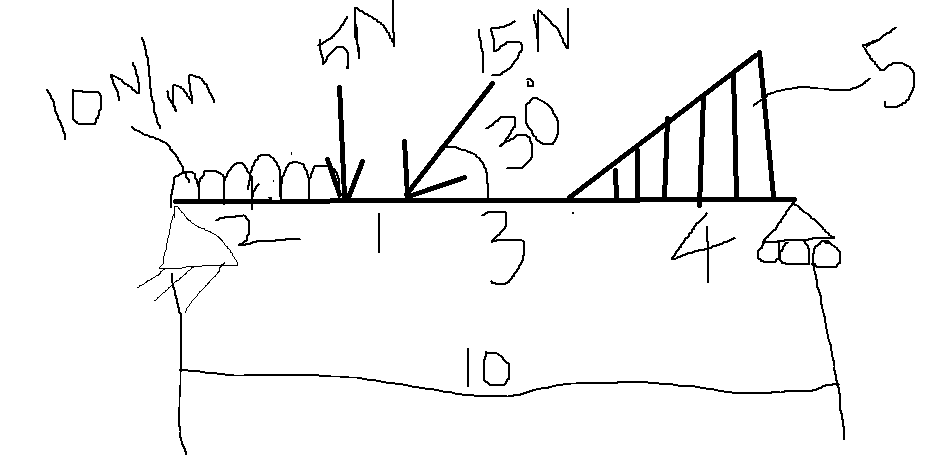 10 N/m
5 N
15 N
30°
5
2
1
3
4
10